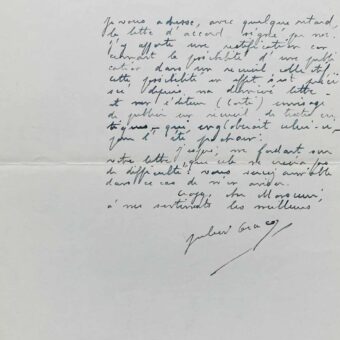 je vous adresse, avec quelque retard,
la lettre d'accord signée par moi.
J'y apporte une rectification con-
cernant la possibilité d'une publi-
cation dans un recueil collectif
cette possibilité en effet s'est préci-
sée depuis ma dernière lettre
et mon éditeur (Corti) envisage
de publier un recueil de textes cri-
tiques qui engloberait celui-ci,
pour l'été prochain.
J'espère, me fondant sur
votre lettre, que cela ne créera pas
de difficulté: vous seriez aimable
dans ce cas de m'en aviser.
Croyez, cher Monsieur,
à mes sentiments les meilleurs
Julien Gracq